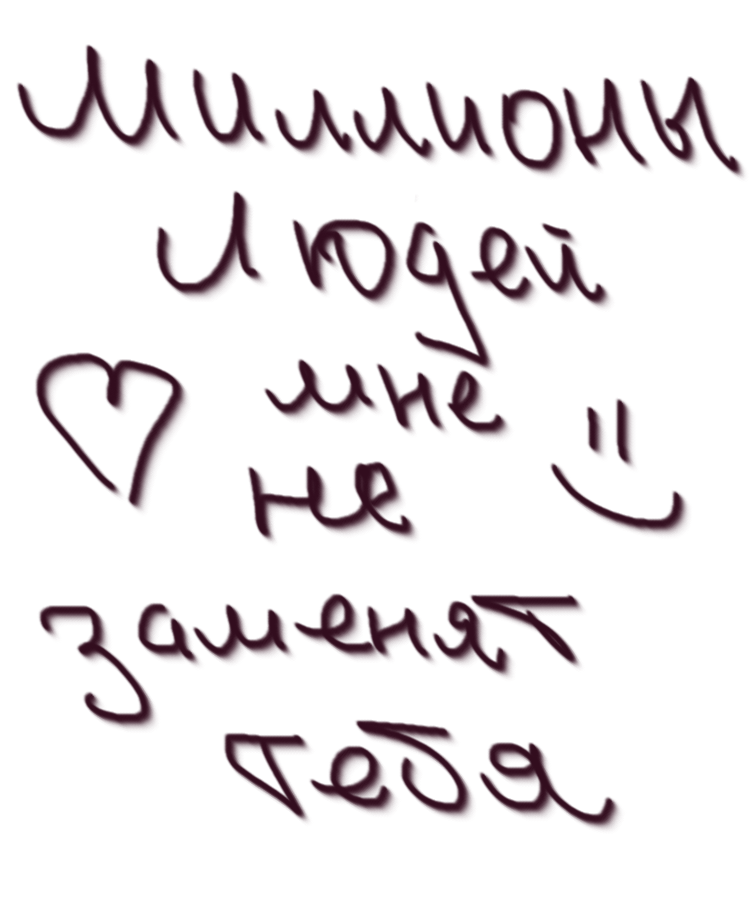 миллионы
людей
мне
не
заменят
тебя